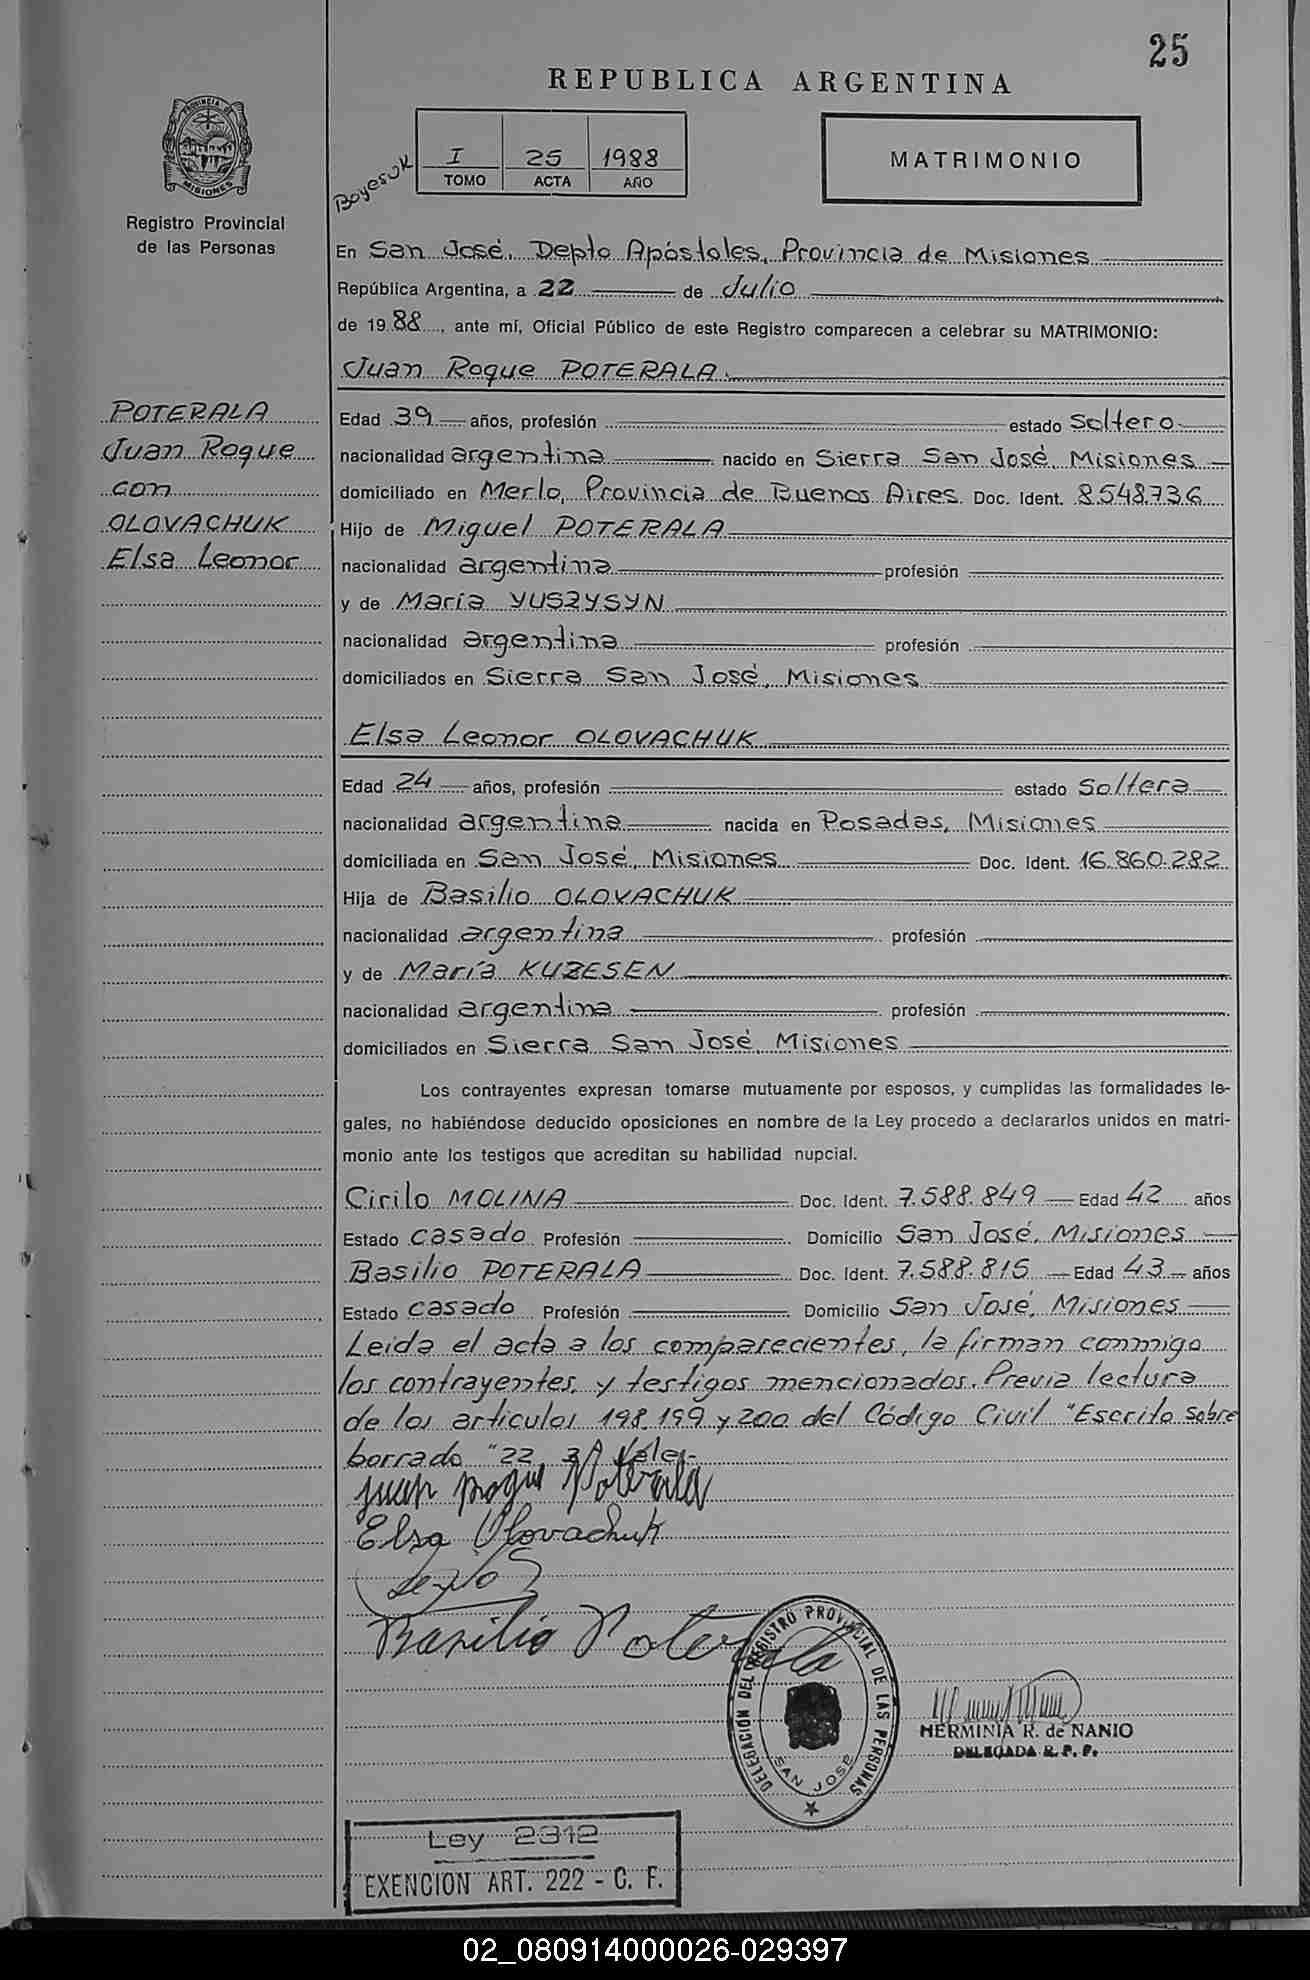 25
REPUBLICA ARGENTINA
PROVINCIA DE MISIONES
Registro Provincial
de las Personas
Boyesuk
I 25 1988
TOMO ACTA AÑO
MATRIMONIO
En San José, Depto Apóstoles, Provincia de Misiones
República Argentina, a 22 de Julio
de 1988, ante mí, Oficial Público de este Registro comparecen a celebrar su MATRIMONIO:
Juan Roque POTERALA
POTERALA
Juan Roque
con
OLOVACHUK
Elsa Leonor
Edad 39 años, profesión estado Soltero
nacionalidad argentina nacido en Sierra San José, Misiones
domiciliado en Merlo, Provincia de Buenos Aires. Doc. Ident. 8.548.736
Hijo de Miguel POTERALA
nacionalidad argentina profesión
y de María YUSZYSYN
nacionalidad argentina profesión
domiciliados en Sierra San José, Misiones
Elsa Leonor OLOVACHUK
Edad 24 años, profesión estado Soltera
nacionalidad argentina nacida en Posadas, Misiones
domiciliada en San José, Misiones Doc. Ident. 16.860.282
Hija de Basilio OLOVACHUK
nacionalidad argentina profesión
y de María KUZESEN
nacionalidad argentina profesión
domiciliados en Sierra San José, Misiones
Los contrayentes expresan tomarse mutuamente por esposos, y cumplidas las formalidades le-
gales, no habiéndose deducido oposiciones en nombre de la Ley procedo a declararlos unidos en matri-
monio ante los testigos que acreditan su habilidad nupcial.
Cirilo MOLINA Doc. Ident. 7.588.849 Edad 42 años
Estado casado Profesión Domicilio San José, Misiones
Basilio POTERALA Doc. Ident. 7.588.815 Edad 43 años
Estado casado Profesión Domicilio San José, Misiones
Leida el acta a los comparecientes, la firman conmigo
los contrayentes y testigos mencionados. Previa lectura
de los artículos 198 199 y 200 del Código Civil "Escrito sobre
borrado "22 Vale.-
Juan Roque Poterala
Elsa Olovachuk
Basilio Poterala
DELEGACIÓN DEL REGISTRO PROVINCIAL DE LAS PERSONAS
SAN JOSE
HERMINIA R. de NANIO
DELEGADA R. P. P.
Ley 2312
EXENCION ART. 222 - C. F.
02_080914000026-029397